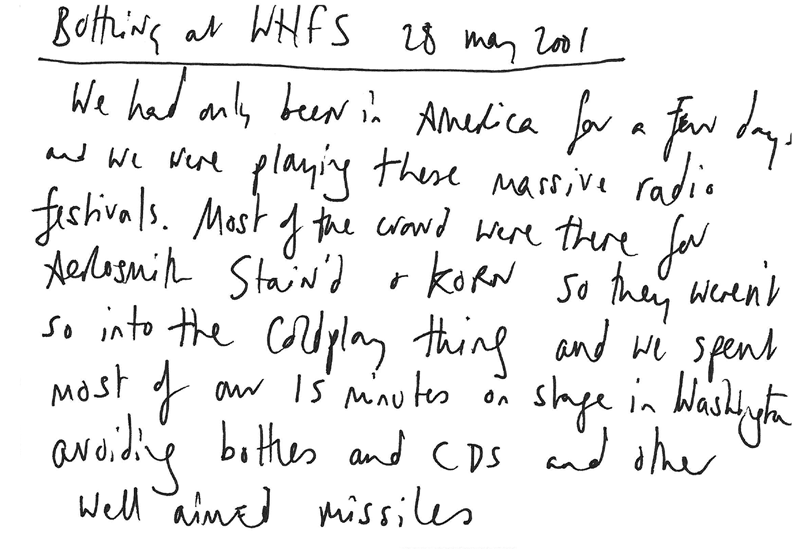 Bottling at WHFS 28 may 2001
We had only been in America for a few days
and we were playing these massive radio
festivals. Most of the crowd were there for
Aerosmith Stain'd & KORN so they weren't
so into the Coldplay thing and we spent
most of our 15 minutes on stage in Washington
avoiding bottles and CDS and other
well aimed missiles